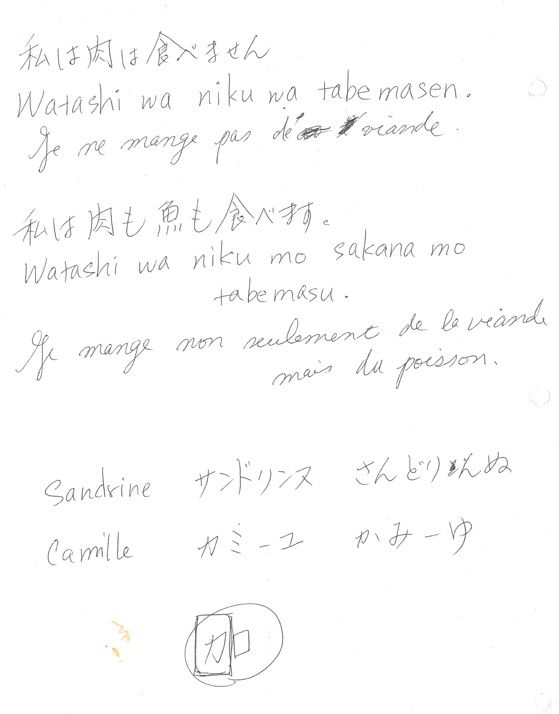 私は肉は食べません
Watashi wa niku wa tabemasen.
Je ne mange pas de viande.
私は肉も魚も食べます。
Watashi wa niku mo sakana mo
tabemasu.
Je mange non seulement de la viande
mais du poisson.
Sandrine サンドリンヌ さんどりんぬ
Camille カミーユ かみーゆ
加